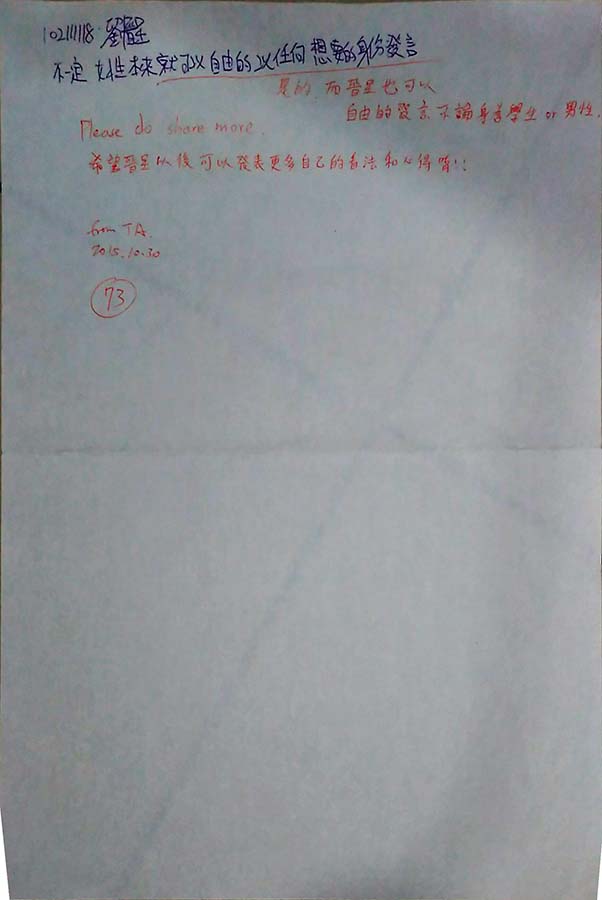 102111118 劉晉呈
不一定 女性本來就可以自由的以任何想要的身份發言
是的, 而晉呈也可以
自由的發言不論身為學生 or 男性.
Please do share more.
希望晉呈以後可以發表更多自己的看法和心得唷!!
from TA.
2015.10.30
73